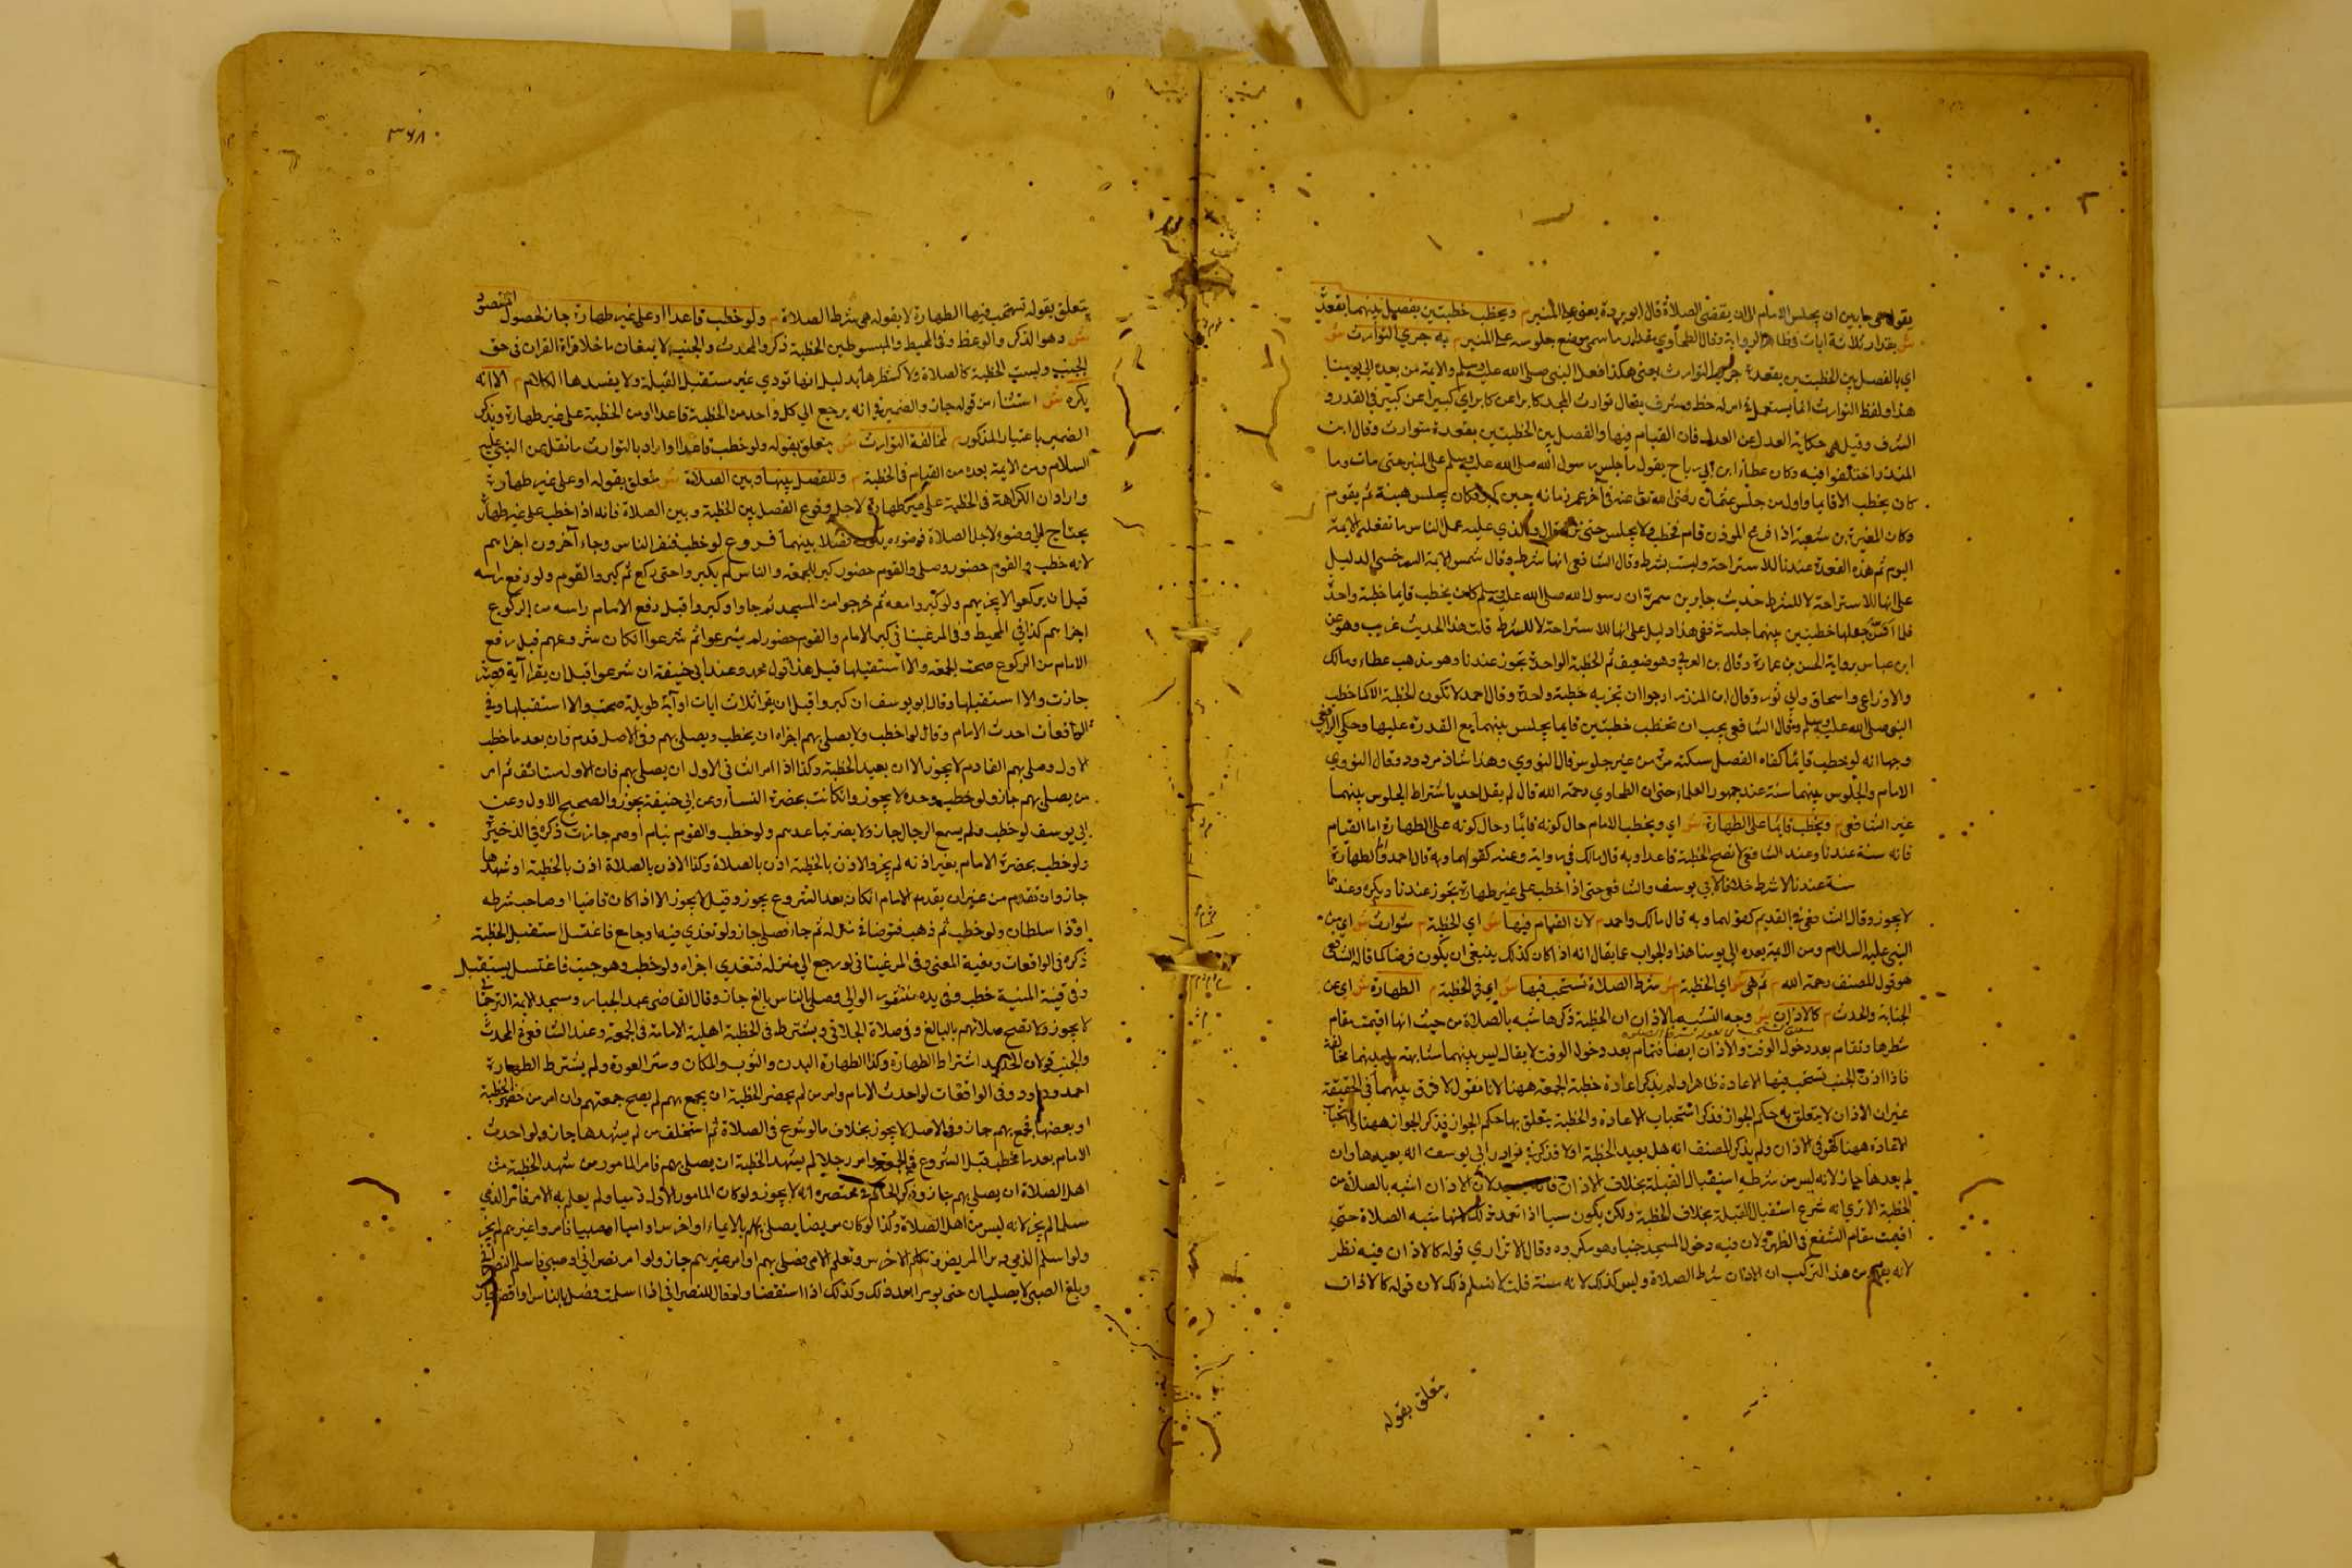 يقول هي ما بين ان يجلس الامام الى ان يقضي الصلاة قال ابو بردة يعني على المنبر م ويخطب خطبتين يفصل بينهما بقعدة
ش بقدار ثلاثة ايات في ظاهر الرواية وقال الطحاوي مقدار ما يمس موضع جلوسه على المنبر م به جري التوارث ش
اي بالفصل بين الخطبتين بقعدة جري التوارث يعني هكذا فعل النبي صلى الله عليه وسلم والايمة من بعده الى يومنا
هذا ولفظ التوارث انما يستعمل في امر له خطر وشرف يقال توارث المجد كابرا عن كابر اي كبيرا عن كبير في القدر و
الشرف وقيل هي حكاية العدل عن العدل فان القيام فيها والفصل بين الخطبتين بقعدة متوارث وقال ابن
المنذر اختلفوا فيه وكان عطاء ابن ابي رباح يقول ما جلس رسول الله صلى الله عليه وسلم على المنبر حتى مات وما
كان يخطب الا قايما واول من جلس عثمان رضى الله تعالى عنه في آخر زمانه حين كبر فكان يجلس هينة ثم يقوم
وكان المغيرة بن شعبة اذا فرغ الموذن قام فخطب ولا يجلس حتى ينزل والذي عليه عمل الناس ما تفعله الايمة
اليوم ثم هذه القعدة عندنا للاستراحة وليست بشرط وقال الشافعي انها شرط وقال شمس الايمة السرخسي الدليل
على انها للاستراحة لا للشرط حديث جابر بن سمرة ان رسول الله صلى الله عليه وسلم كان يخطب قايما خطبة واحدة
فلما اسن جعلها خطبتين بينهما جلسة ففي هذا دليل على انها للاستراحة لا للشرط قلت هذا الحديث غريب وهو عن
ابن عباس برواية الحسن بن عمارة وقال بن العربي وهو ضعيف ثم الخطبة الواحدة تجوز عندنا وهو مذهب عطاء ومالك
والاوزاعي واسحاق وابي ثور وقال ابن المنذر ارجوا ان تجزيه خطبة واحدة وقال احمد لا تكون الخطبة الا كما خطب
النبي صلى الله عليه وسلم وقال الشافعي يجب ان تخطب خطبتين قايما يجلس بينهما مع القدرة عليها وحكي الرافعي
وجها انه لو خطب قائما كفاه الفصل بسكتة من غير جلوس قال النووي وهذا شاذ مردود وقال النووي
الامام والجلوس بينهما سنة عند جمهور العلماء حتى ان الطحاوي رحمه الله قال لم يقل احد باشتراط الجلوس بينهما
غير الشافعي م ويخطب قايما على الطهارة ش اي ويخطب الامام حال كونه قائما وحال كونه على الطهارة اما القيام
فانه سنة عندنا وعند الشافعي لا تصح الخطبة قاعدا وبه قال مالك في رواية وعنه كقولهما وبه قال احمد واما الطهارة
سنة عندنا لا شرط خلافا لابي يوسف والشافعي حتى اذا خطب على غير طهارة يجوز عندنا ويكره وعندهما
لا يجوز وقال الشافعي في القديم كقولهما وبه قال مالك واحمد م لان القيام فيها ش اي الخطبة م متوارث ش اي من
النبي عليه السلام ومن الايمة بعده الى يومنا هذا والجواب عما يقال انه اذا كان كذلك ينبغي ان يكون فرضا كما قاله الشافعي
هو قول المصنف رحمه الله م ثم هي ش اي الخطبة م ش شرط الصلاة تستحب فيها ش اي في الخطبة م الطهارة ش اي عن
الجنابة والحدث م كالاذان ش وجه التشبه بالاذان ان الخطبة ذكرها شبه بالصلاة من حيث انها اقيمت مقام
شطرها وتقام بعد دخول الوقت والاذان ايضا تقام بعد دخول الوقت لا يقال ليس بينهما مشابهة بل بينهما مخالفة
فاذا اذن الجنب تستحب فيها الاعادة ظاهرا ولم يذكر اعادة خطبة الجمعة ههنا لانا نقول لا فرق بينهما في الحقيقة
غير ان الاذان لا يتعلق به حكم الجواز فذكر استحباب الاعادة والخطبة يتعلق بها حكم الجواز فذكر الجواز ههنا واستحباب
الاعادة ههنا كهو في الاذان ولم يذكر المصنف انه هل يعيد الخطبة او لا فذكر في نوادر ابي يوسف انه يعيدها وان
لم يعدها جاز لانه ليس من شرطه استقبال القبلة بخلاف الاذان لان الاذان اشبه بالصلاة من
الخطبة الا تري انه شرع استقبال القبلة بخلاف الخطبة ولكن يكون مسيا اذا تعمد ذلك لانها شبه الصلاة حتى
اقيمت مقام الشفع في الظهر ولان فيه دخول المسجد جنبا وهو مكروه وقال الاتراري قوله كالاذان فيه نظر
لانه يفهم من هذا التركيب ان الاذان شرط الصلاة وليس كذلك لانه سنة قلت لا نسلم ذلك لان قوله كالاذان
يتعلق بقوله
٣٦٨
يتعلق بقوله تستحب فيها الطهارة لا بقوله هي شرط الصلاة م ولو خطب قاعدا او على غير طهارة جاز لحصول المقصود
ش وهو الذكر والوعظ وفي المحيط والمبسوط بين الخطبة ذكر والمحدث والجنب لا يمنعان ما خلا قراة القران في حق
الجنب وليست الخطبة كالصلاة ولا كشطرها بدليل انها تودي غير مستقبل القبلة ولا يفسدها الكلام م الا انه
يكره ش استثناء من قوله جاز والضمير في انه يرجع الى كل واحد من الخطبة قاعدا ومن الخطبة على غير طهارة وتذكير
الضمير باعتبار المذكور م لمخالفة التوارث ش يتعلق بقوله ولو خطب قاعدا واراد بالتوارث ما نقل عن النبي عليه
السلام ومن الايمة بعده من القيام في الخطبة م وللفصل بينها وبين الصلاة ش يتعلق بقوله او على غير طهارة
واراد ان الكراهة في الخطبة على غير طهارة لاجل وقوع الفصل بين الخطبة وبين الصلاة فانه اذا خطب على غير طهارة
يحتاج الى وضوء لاجل الصلاة فوضوءه يكون فصلا بينهما فروع لو خطب فنفر الناس وجاء آخرون اجزاهم
لانه خطب والقوم حضور وصلى والقوم حضور كبر للجمعة والناس لم يكبروا حتى ركع ثم كبر والقوم ولو رفع راسه
قبل ان يركعوا لا يجزيهم ولو كبروا معه ثم خرجوا من المسجد ثم جاوا وكبروا قبل رفع الامام راسه من الركوع
اجزاهم كذا في المحيط وفي المرغيناني كبر الامام والقوم حضور لم يشرعوا ثم شرعوا ان كان شروعهم قبل رفع
الامام من الركوع صحت الجمعة والا استقبلها قبل هذا قول محمد وعند ابي حنيفة ان شرعوا قبل ان يقرا آية قصيرة
جازت والا استقبلها وقال ابو يوسف ان كبروا قبل ان يقرا ثلاث ايات او آية طويلة صحت والا استقبلها وفي
الواقعات احدث الامام وقال لواحد اخطب ولا يصلي بهم اجزاه ان يخطب ويصلي بهم وفي الاصل قدم وان بعد ما خطب
الاول وصلى بهم القادم لا يجوز الا ان يعيد الخطبة وكذا اذا امر الثاني الاول ان يصلي بهم فان الاول مستانف ثم امر
من يصلي بهم جاز ولو خطب وحده لا يجوز وان كانت بحضرة النساء وعن ابي حنيفة يجوز والصحيح الاول وعن
ابي يوسف لو خطب ولم يسمع الرجال جاز ولا يضر تباعدهم ولو خطب والقوم نيام او صم جازت ذكره في الذخيرة
ولو خطب بحضرة الامام بغير اذنه لم يجز والاذن بالخطبة اذن بالصلاة وكذا الاذن بالصلاة اذن بالخطبة او شهدها
جاز وان تقدم من غير ان يقدم الامام ان كان بعد الشروع يجوز وقيل لا يجوز الا اذا كان قاضيا او صاحب شرطه
او ذا سلطان ولو خطب ثم ذهب فتوضا في منزله ثم جاء فصلى جاز ولو تغدي فيه او جامع فاغتسل استقبل الخطبة
ذكره في الواقعات ومغية المعنى وفي المرغيناني لو رجع الى منزله فتغدي اجزاه ولو خطب وهو جنب فاغتسل يستقبل
وفي قنية المنية خطب وفي يده منشور الوالي وصلى بالناس بالغ جاز وقال القاضي عبد الجبار وسيد الايمة الترجماني
لا يجوز ولا تصح صلاتهم بالبالغ وفي صلاة الجلابي ويشترط في الخطبة اهلية الامامة في الجمعة وعند الشافعي في المحدث
والجنب قولان الجديد اشتراط الطهارة وكذا الطهارة البدن والثوب والمكان وستر العورة ولم يشترط الطهارة
احمد وداوود وفي الواقعات لو احدث الامام وامر من لم يحضر الخطبة ان يجمع بهم لم يصح جمعتهم وان امر من حضر الخطبة
او بعضها يجمع بهم جاز وفي الاصل لا يجوز بخلاف ما لو شرع في الصلاة ثم استخلف من لم يشهدها جاز ولو احدث
الامام بعد ما خطب قبل الشروع في الجمعة وامر رجلا لم يشهد الخطبة ان يصلي بهم فامر المامور من شهد الخطبة من
اهل الصلاة ان يصلي بهم جاز وذكر الحاكم في مختصره انه لا يجوز ولو كان المامور الاول ذميا ولم يعلم به الامر فامر الذمي
مسلما لم يجز لانه ليس من اهل الصلاة وكذا لو كان مريضا يصلي بهم بالايماء او اخرس او اميا او صبيا فامروا غيرهم لم يجز
ولو اسلم الذمي وبرا المريض وتكلم الاخرس وتعلم الامي فصلى بهم او امر غيرهم جاز ولو امر نصراني او صبي فاسلم النصراني
وبلغ الصبي لا يصليان حتى يومرا بعد ذلك وكذلك اذا استقضيا ولو قال للنصراني اذا اسلمت فصل بالناس او اقض جاز